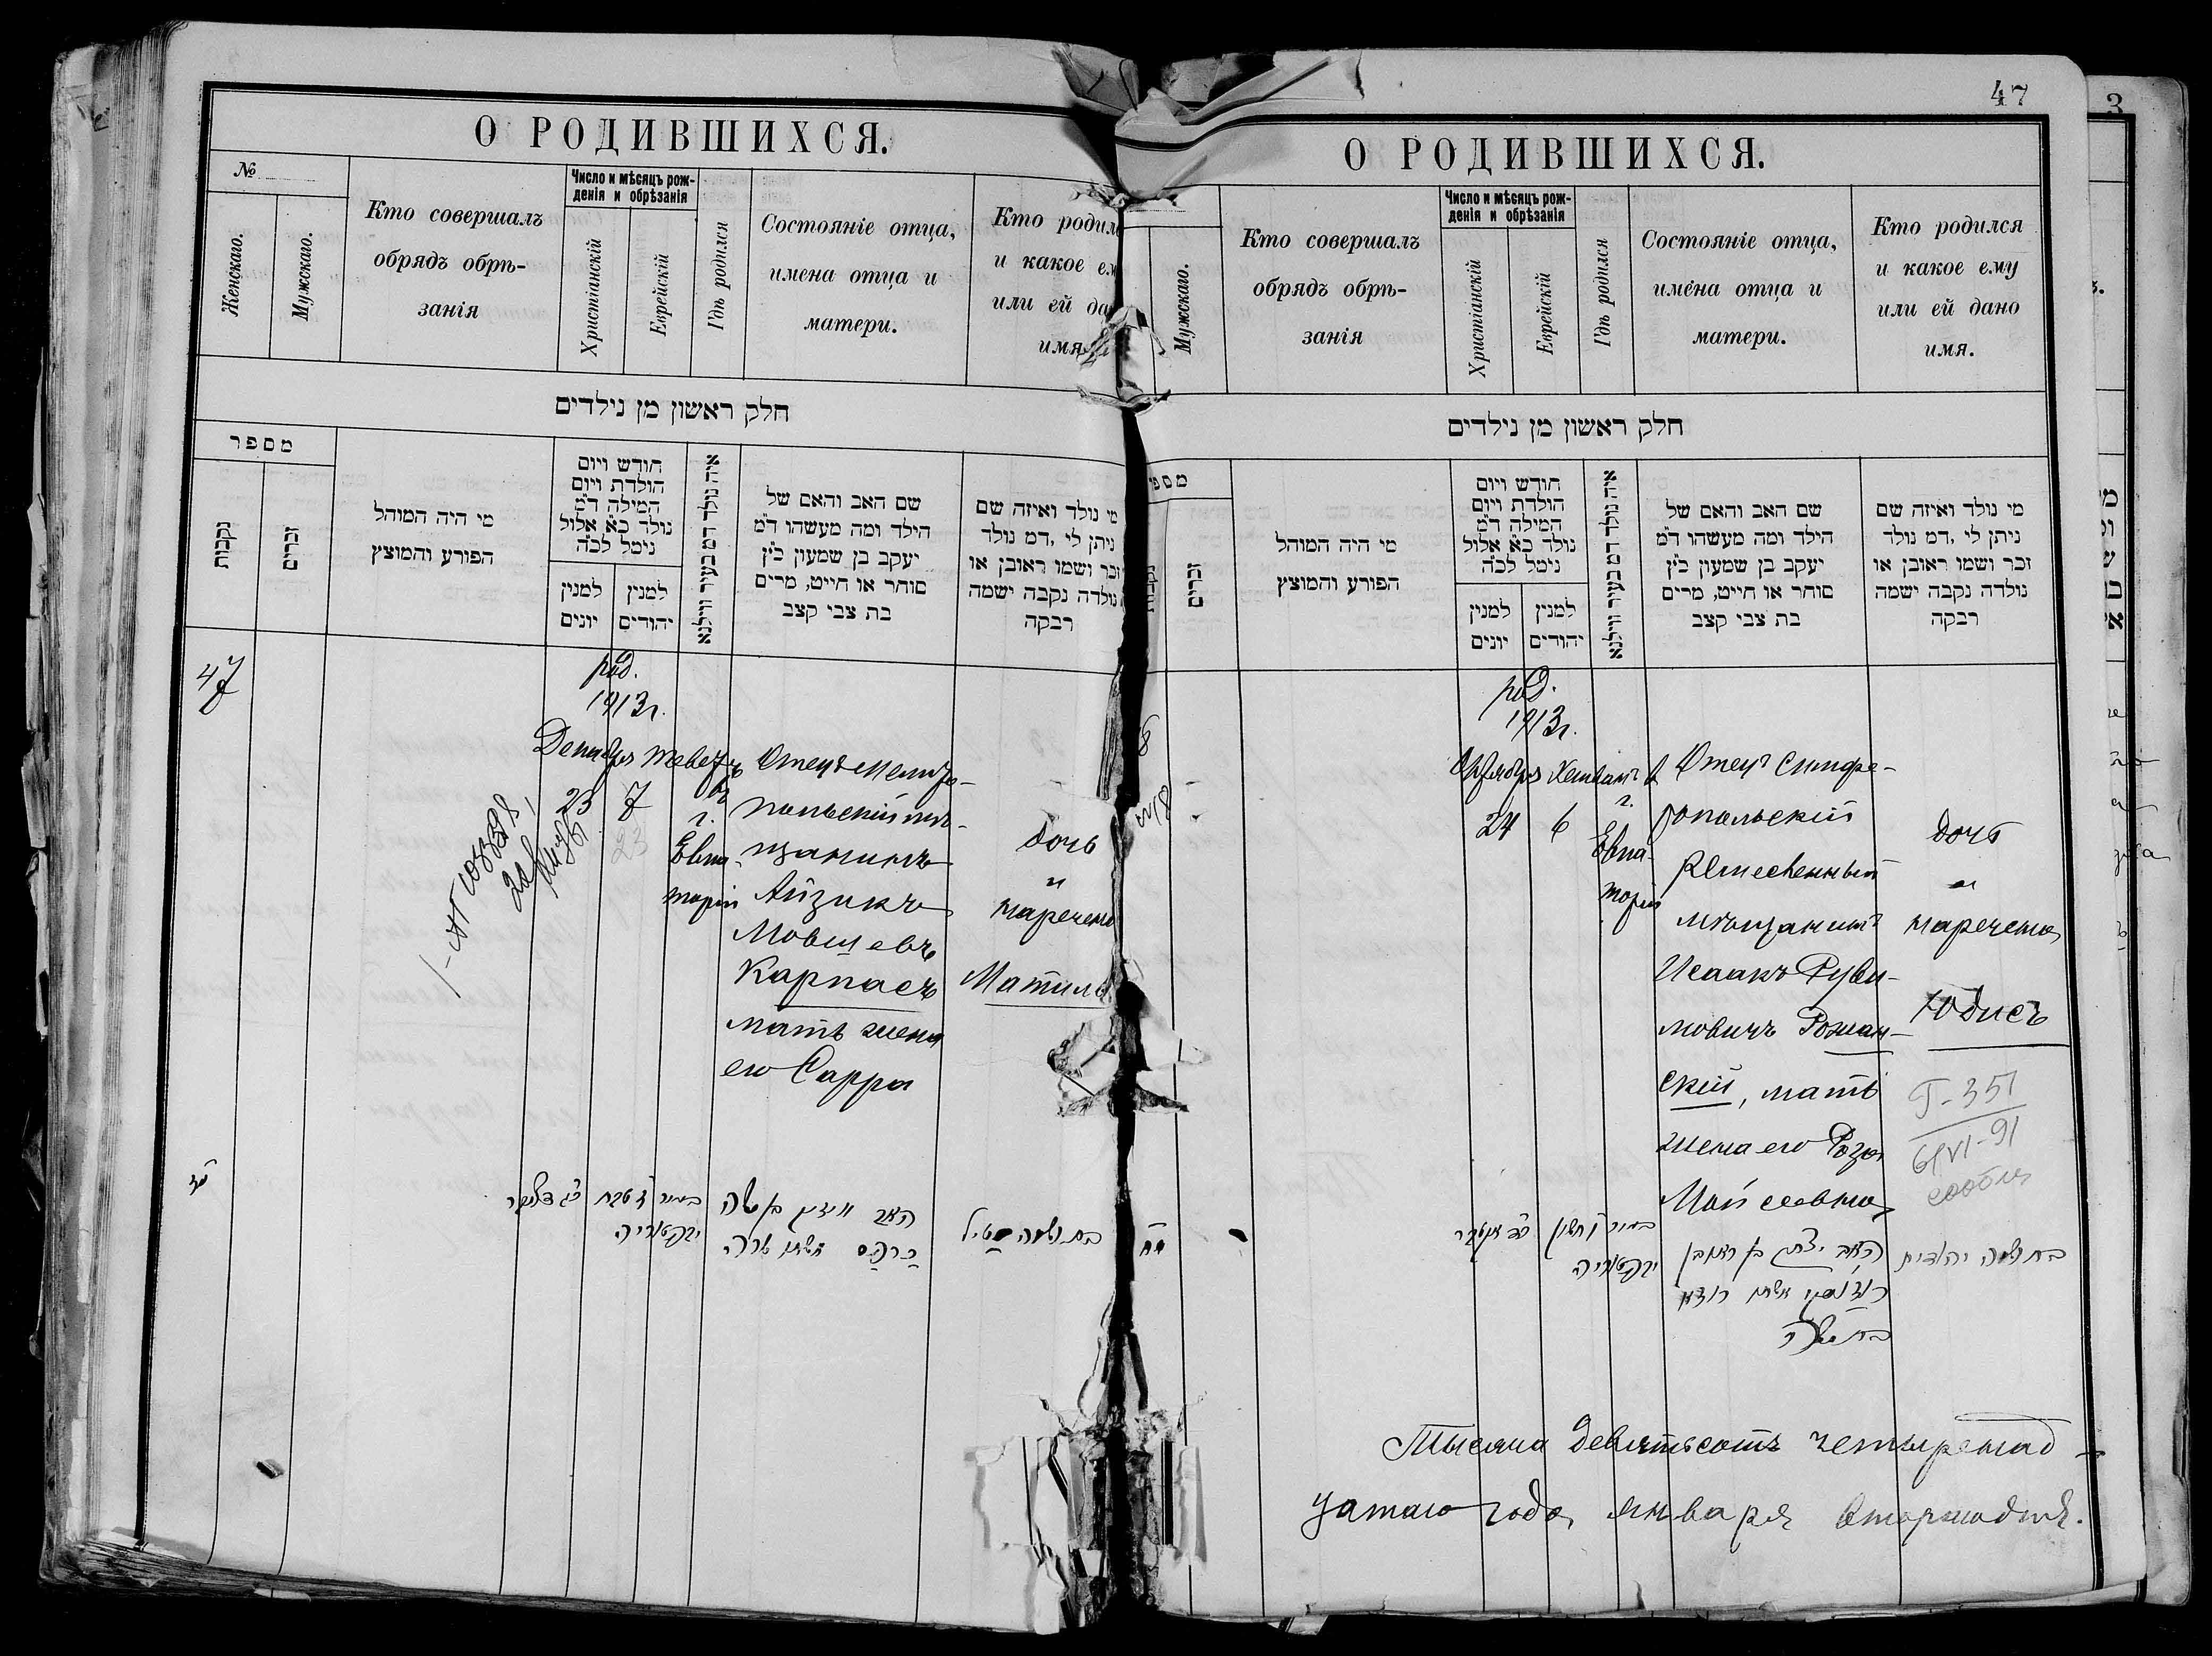 О РОДИВШИХСЯ.
№
Женскаго.
Мужскаго.
Кто совершалъ
обрядъ обрѣ-
занія
Число и мѣсяцъ рож-
денія и обрѣзанія
Христіанскій
Еврейскій
Гдѣ родился
Состояніе отца,
имена отца и
матери.
Кто родил
и какое ем
или ей да
имя
חלק ראשון מן נילדים
מספר
נקבות
זכרים
מי היה המוהל
הפורע והמוצץ
חודש ויום
הולדת ויום
המילה ד״מ
נולד כ״א אלול
נימל לכ״ה
למנין
יונים
למנין
יהודים
איה נולד דמ בעיר ווילנא
שם האב והאם של
הילד ומה מעשהו ד״מ
יעקב בן שמעון כ״ץ
סוחר או חייט, מרים
בת צבי קצב
מי נולד ואיזה שם
ניתן לי, דמ נולד
זכר ושמו ראובן או
נולדה נקבה ישמה
רבקה
47
род.
1913г.
Декабря
23
Тевезъ
7
23
въ
г.
Евпа-
торіи
Отецъ Мелито-
польскій мѣ-
щанинъ
Айзикъ
Мовшевъ
Карпасъ
мать жена
его Сарра
дочь
"
наречена
Матиль
האב אייזיק בן משה
קרפס אשתו שרה
47
О РОДИВШИХСЯ.
Мужскаго.
Кто совершалъ
обрядъ обрѣ-
занія
Число и мѣсяцъ рож-
денія и обрѣзанія
Христіанскій
Еврейскій
Гдѣ родился
Состояніе отца,
имена отца и
матери.
Кто родился
и какое ему
или ей дано
имя.
חלק ראשון מן נילדים
מספ
זכרים
מי היה המוהל
הפורע והמוצץ
חודש ויום
הולדת ויום
המילה ד״מ
נולד כ״א אלול
נימל לכ״ה
למנין
יונים
למנין
יהודים
איה נולד דמ בעיר ווילנא
שם האב והאם של
הילד ומה מעשהו ד״מ
יעקב בן שמעון כ״ץ
סוחר או חייט, מרים
בת צבי קצב
מי נולד ואיזה שם
ניתן לי, דמ נולד
זכר ושמו ראובן או
נולדה נקבה ישמה
רבקה
род.
1913г.
Октября
24
Хешванъ
6
в
г.
Евпа-
торіи
Отецъ Симфе-
ропольскій
ремесленный
мѣщанинъ
Исаакъ Руви-
мовичъ Рожан-
скій, мать
жена его Роза
Мойсеевна
дочь
"
наречена
Юдисъ
Г-351
6/VI-91
сообщ
האב יצחק בן ראובן
בת ושמה יהודית
Тысяча девятьсотъ четыренад-
цатаго года января второго дня.
3